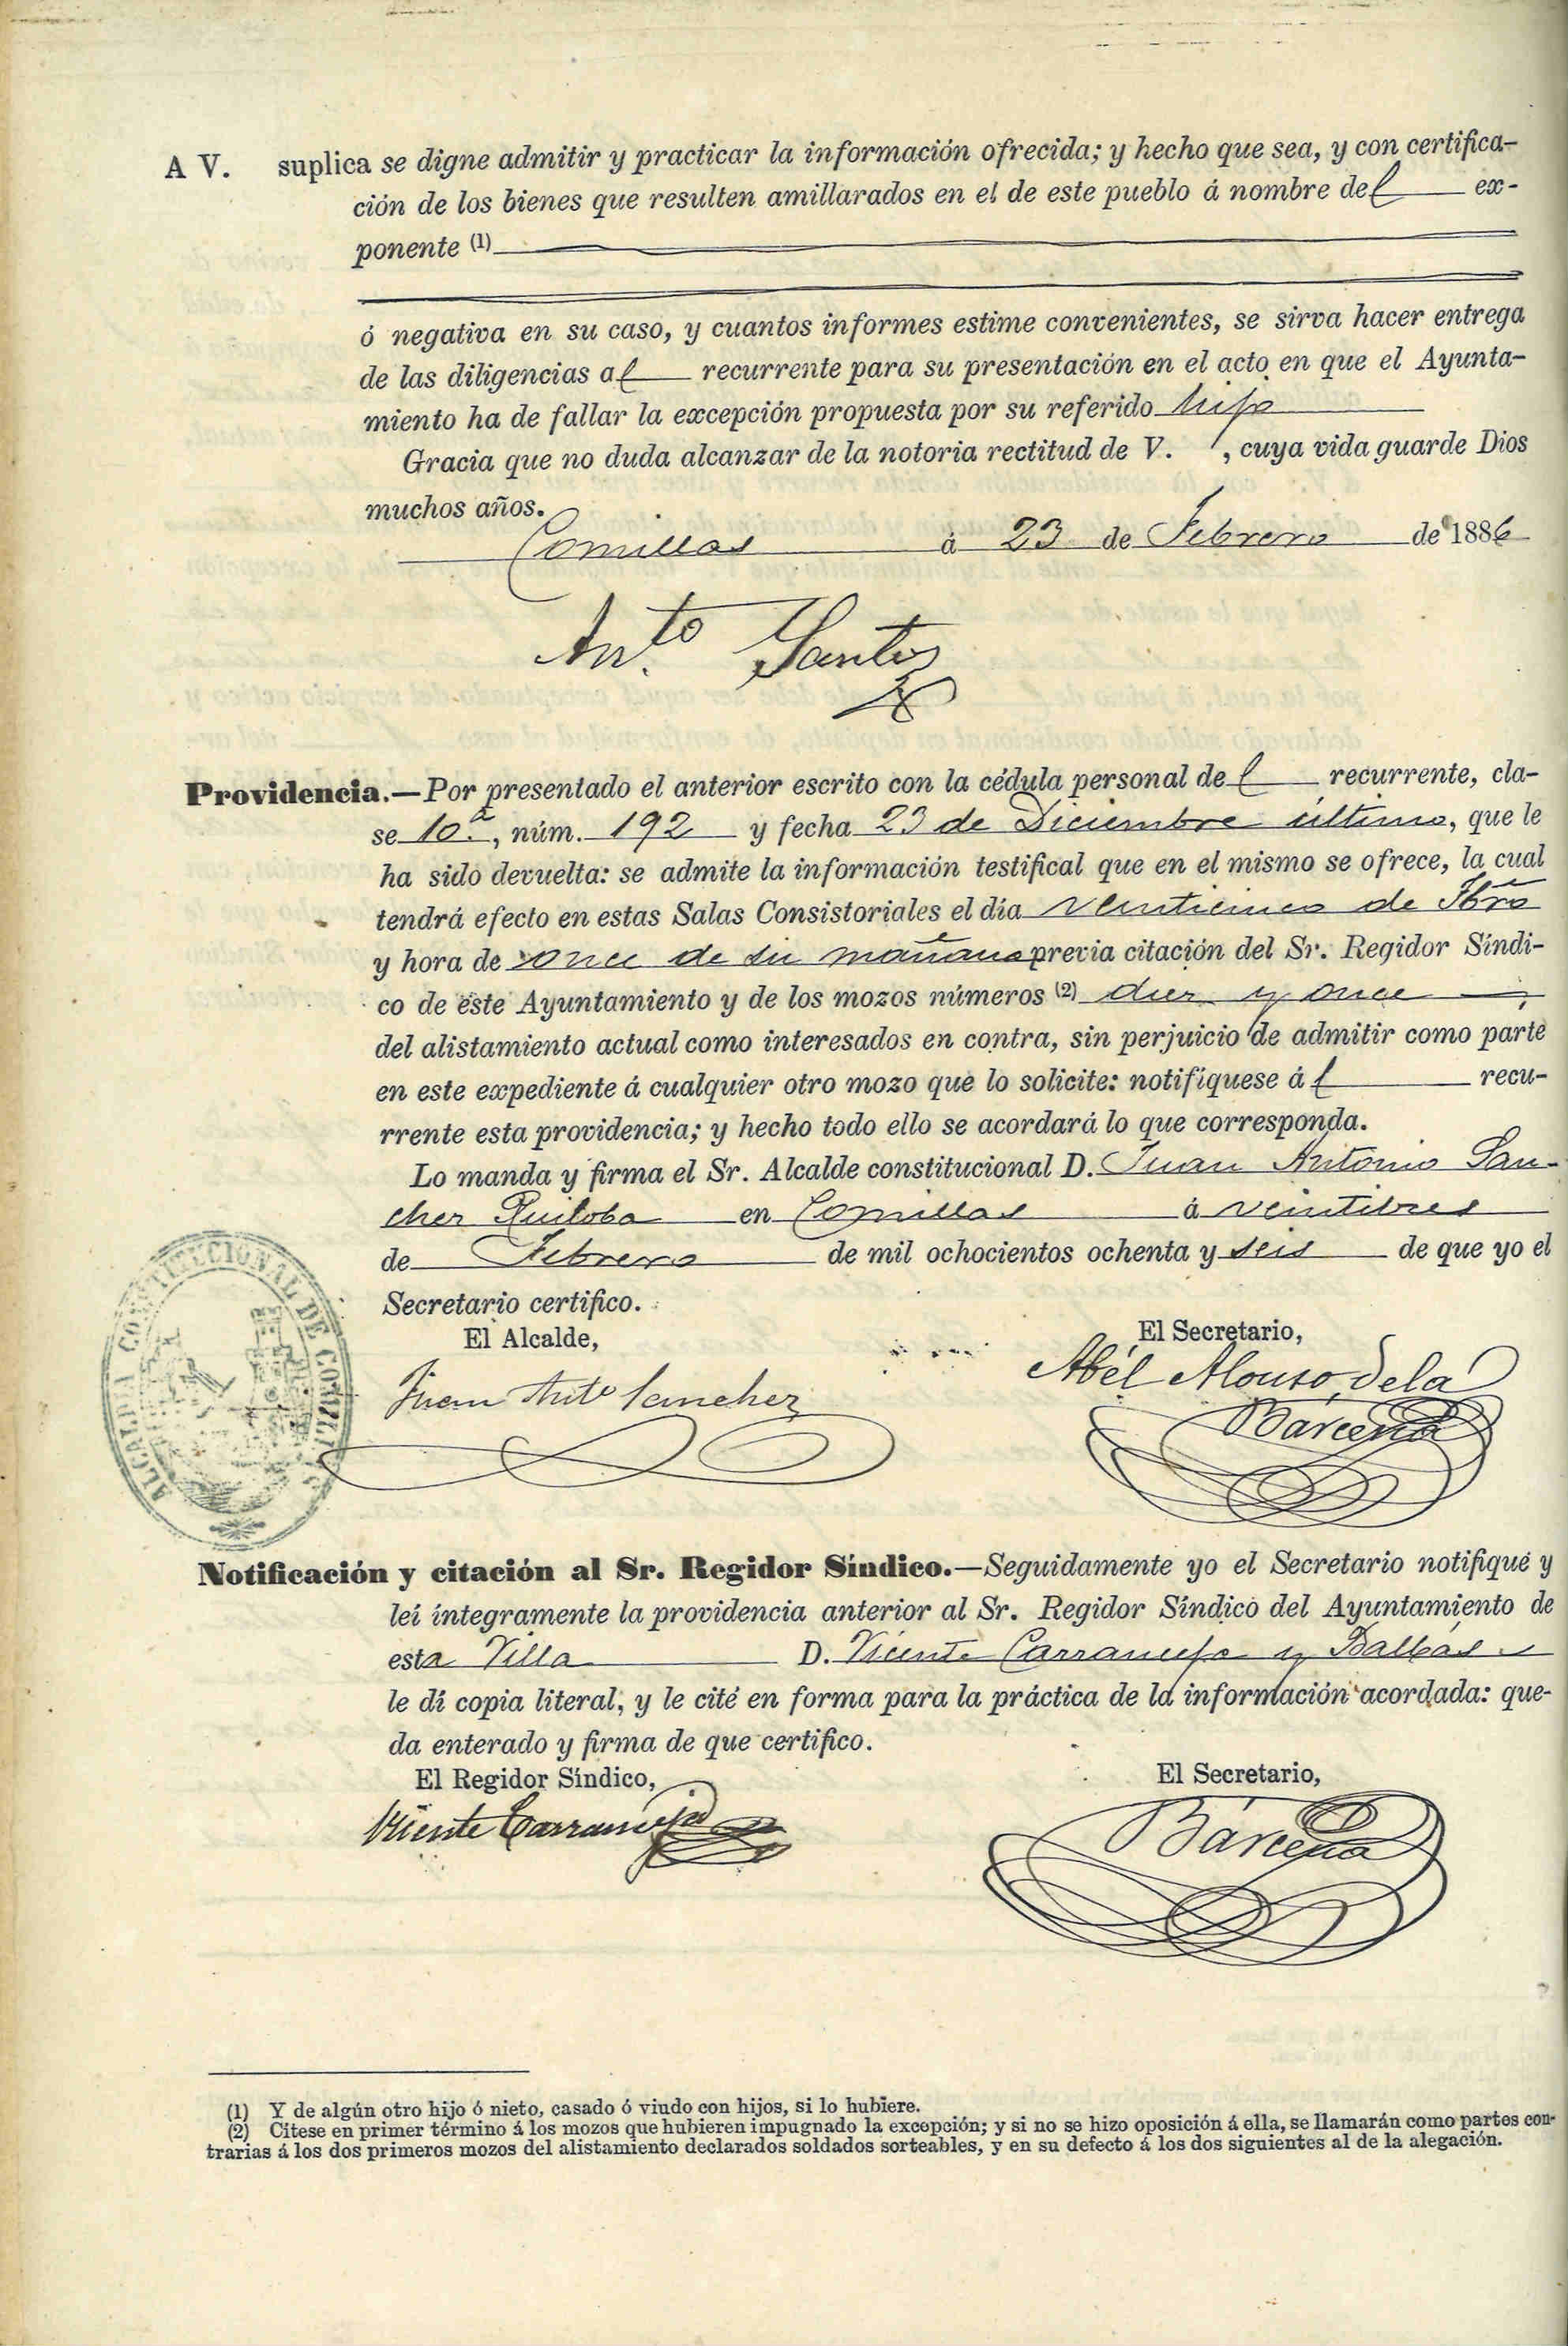 A V. suplica se digne admitir y practicar la información ofrecida; y hecho que sea, y con certifica-
ción de los bienes que resulten amillarados en el de este pueblo á nombre del ex-
ponente (1)
ó negativa en su caso, y cuantos informes estime convenientes, se sirva hacer entrega
de las diligencias al recurrente para su presentación en el acto en que el Ayunta-
miento ha de fallar la excepción propuesta por su referido hijo
Gracia que no duda alcanzar de la notoria rectitud de V. , cuya vida guarde Dios
muchos años.
Comillas á 23 de Febrero de 1886
Ant.to Santos
Providencia.—Por presentado el anterior escrito con la cédula personal del recurrente, cla-
se 10.ª, núm. 192 y fecha 23 de Diciembre último, que le
ha sido devuelta: se admite la información testifical que en el mismo se ofrece, la cual
tendrá efecto en estas Salas Consistoriales el día veinticinco de Fbro
y hora de once de su mañana previa citación del Sr. Regidor Síndi-
co de este Ayuntamiento y de los mozos números (2) diez y once
del alistamiento actual como interesados en contra, sin perjuicio de admitir como parte
en este expediente á cualquier otro mozo que lo solicite: notifíquese ál recu-
rrente esta providencia; y hecho todo ello se acordará lo que corresponda.
Lo manda y firma el Sr. Alcalde constitucional D. Juan Antonio San-
chez Ruiloba en Comillas á veintitres
de Febrero de mil ochocientos ochenta y seis de que yo el
Secretario certifico.
El Alcalde, El Secretario,
Juan Antº Sanchez Abél Alonso de la
Bárcena
ALCALDIA CONSTITUCIONAL DE COMILLAS
Notificación y citación al Sr. Regidor Síndico.—Seguidamente yo el Secretario notifiqué y
leí íntegramente la providencia anterior al Sr. Regidor Síndico del Ayuntamiento de
esta Villa D. Vicente Carranceja y Balbás
le dí copia literal, y le cité en forma para la práctica de la información acordada: que-
da enterado y firma de que certifico.
El Regidor Síndico, El Secretario,
Vicente Carranceja Bárcena
(1) Y de algún otro hijo ó nieto, casado ó viudo con hijos, si lo hubiere.
(2) Cítese en primer término á los mozos que hubieren impugnado la excepción; y si no se hizo oposición á ella, se llamarán como partes con-
trarias á los dos primeros mozos del alistamiento declarados soldados sorteables, y en su defecto á los dos siguientes al de la alegación.